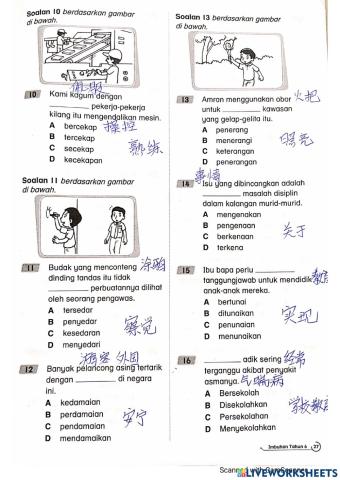 Soalan 10 berdasarkan gambar
di bawah.
佩服
10 Kami kagum dengan
________ pekerja-pekerja
kilang itu mengendalikan mesin.
操控
A bercekap
B tercekap
C secekap
熟练
D kecekapan
Soalan 11 berdasarkan gambar
di bawah.
11 Budak yang menconteng 涂鸦
dinding tandas itu tidak
________ perbuatannya dilihat
oleh seorang pengawas.
A tersedar
B penyedar
C kesedaran
察觉
D menyedari
外国
12 Banyak pelancong asing tertarik
dengan ________ di negara
ini.
A kedamaian
B perdamaian
C pendamaian
安宁
D mendamaikan
Soalan 13 berdasarkan gambar
di bawah.
13 Amran menggunakan obor 火把
untuk ________ kawasan
yang gelap-gelita itu.
A penerang
B menerangi
照亮
C keterangan
D penerangan
事情
14 Isu yang dibincangkan adalah
________ masalah disiplin
dalam kalangan murid-murid.
A mengenakan
B pengenaan
C berkenaan
关于
D terkena
15 Ibu bapa perlu ________
tanggungjawab untuk mendidik
anak-anak mereka.
A bertunai
B ditunaikan
实现
C penunaian
D menunaikan
16 ________ adik sering 经常
terganggu akibat penyakit
asmanya. 气喘病
A Bersekolah
B Disekolahkan
C Persekolahan
D Menyekolahkan
Imbuhan Tahun 6 27
LIVEWORKSHEETS